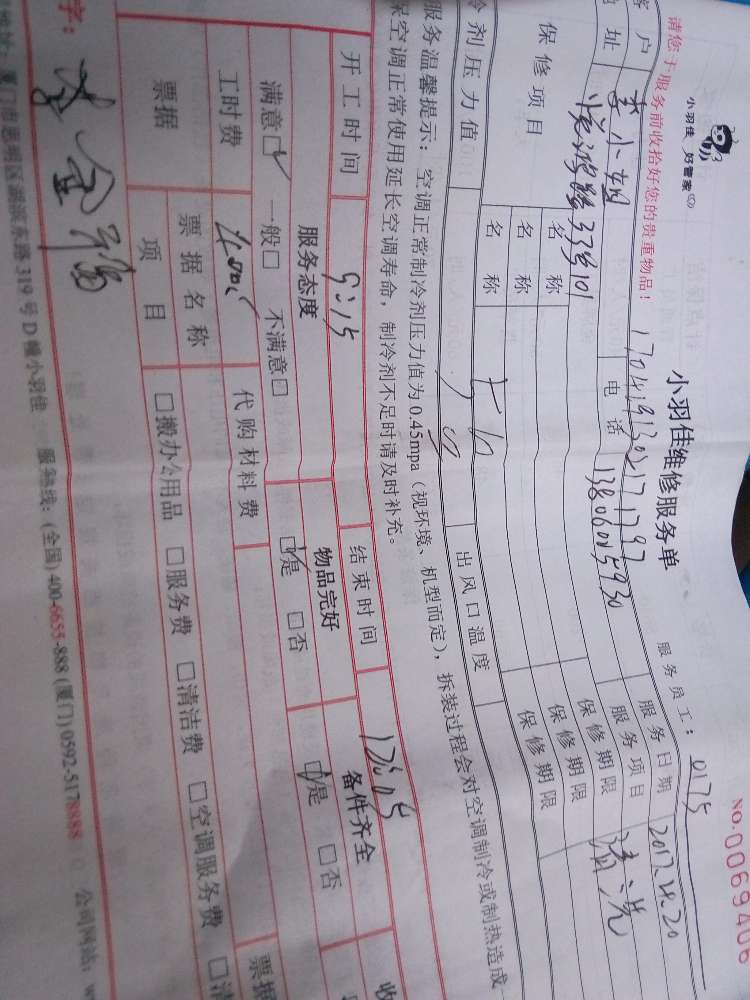 小羽佳 好管家
小羽佳维修服务单
NO.0069406
请您于服务前收拾好您的贵重物品！
服务员工：0175
客户 李小姐 电话 13806015930 服务日期 2017.4.20
地址 33号101 服务项目 清洗
保修项目 名称 保修期限
名称 保修期限
名称 保修期限
冷剂压力值 出风口温度
服务温馨提示：空调正常制冷剂压力值为0.45mpa（视环境、机型而定），拆装过程会对空调制冷或制热造成
保空调正常使用延长空调寿命，制冷剂不足时请及时补充。
开工时间 9:15 结束时间 12:05 收
服务态度 物品完好 备件齐全
满意☑ 一般□ 不满意□ ☑是 □否 ☑是 □否
工时费 代购材料费
票据 票据名称 票据
项目 □搬办公用品 □服务费 □清洁费 □空调服务费 □清
字：
地址：厦门市思明区湖滨东路319号D幢小羽佳 服务热线：(全国) 400-6655-888 (厦门) 0592-5178888 公司网站：w